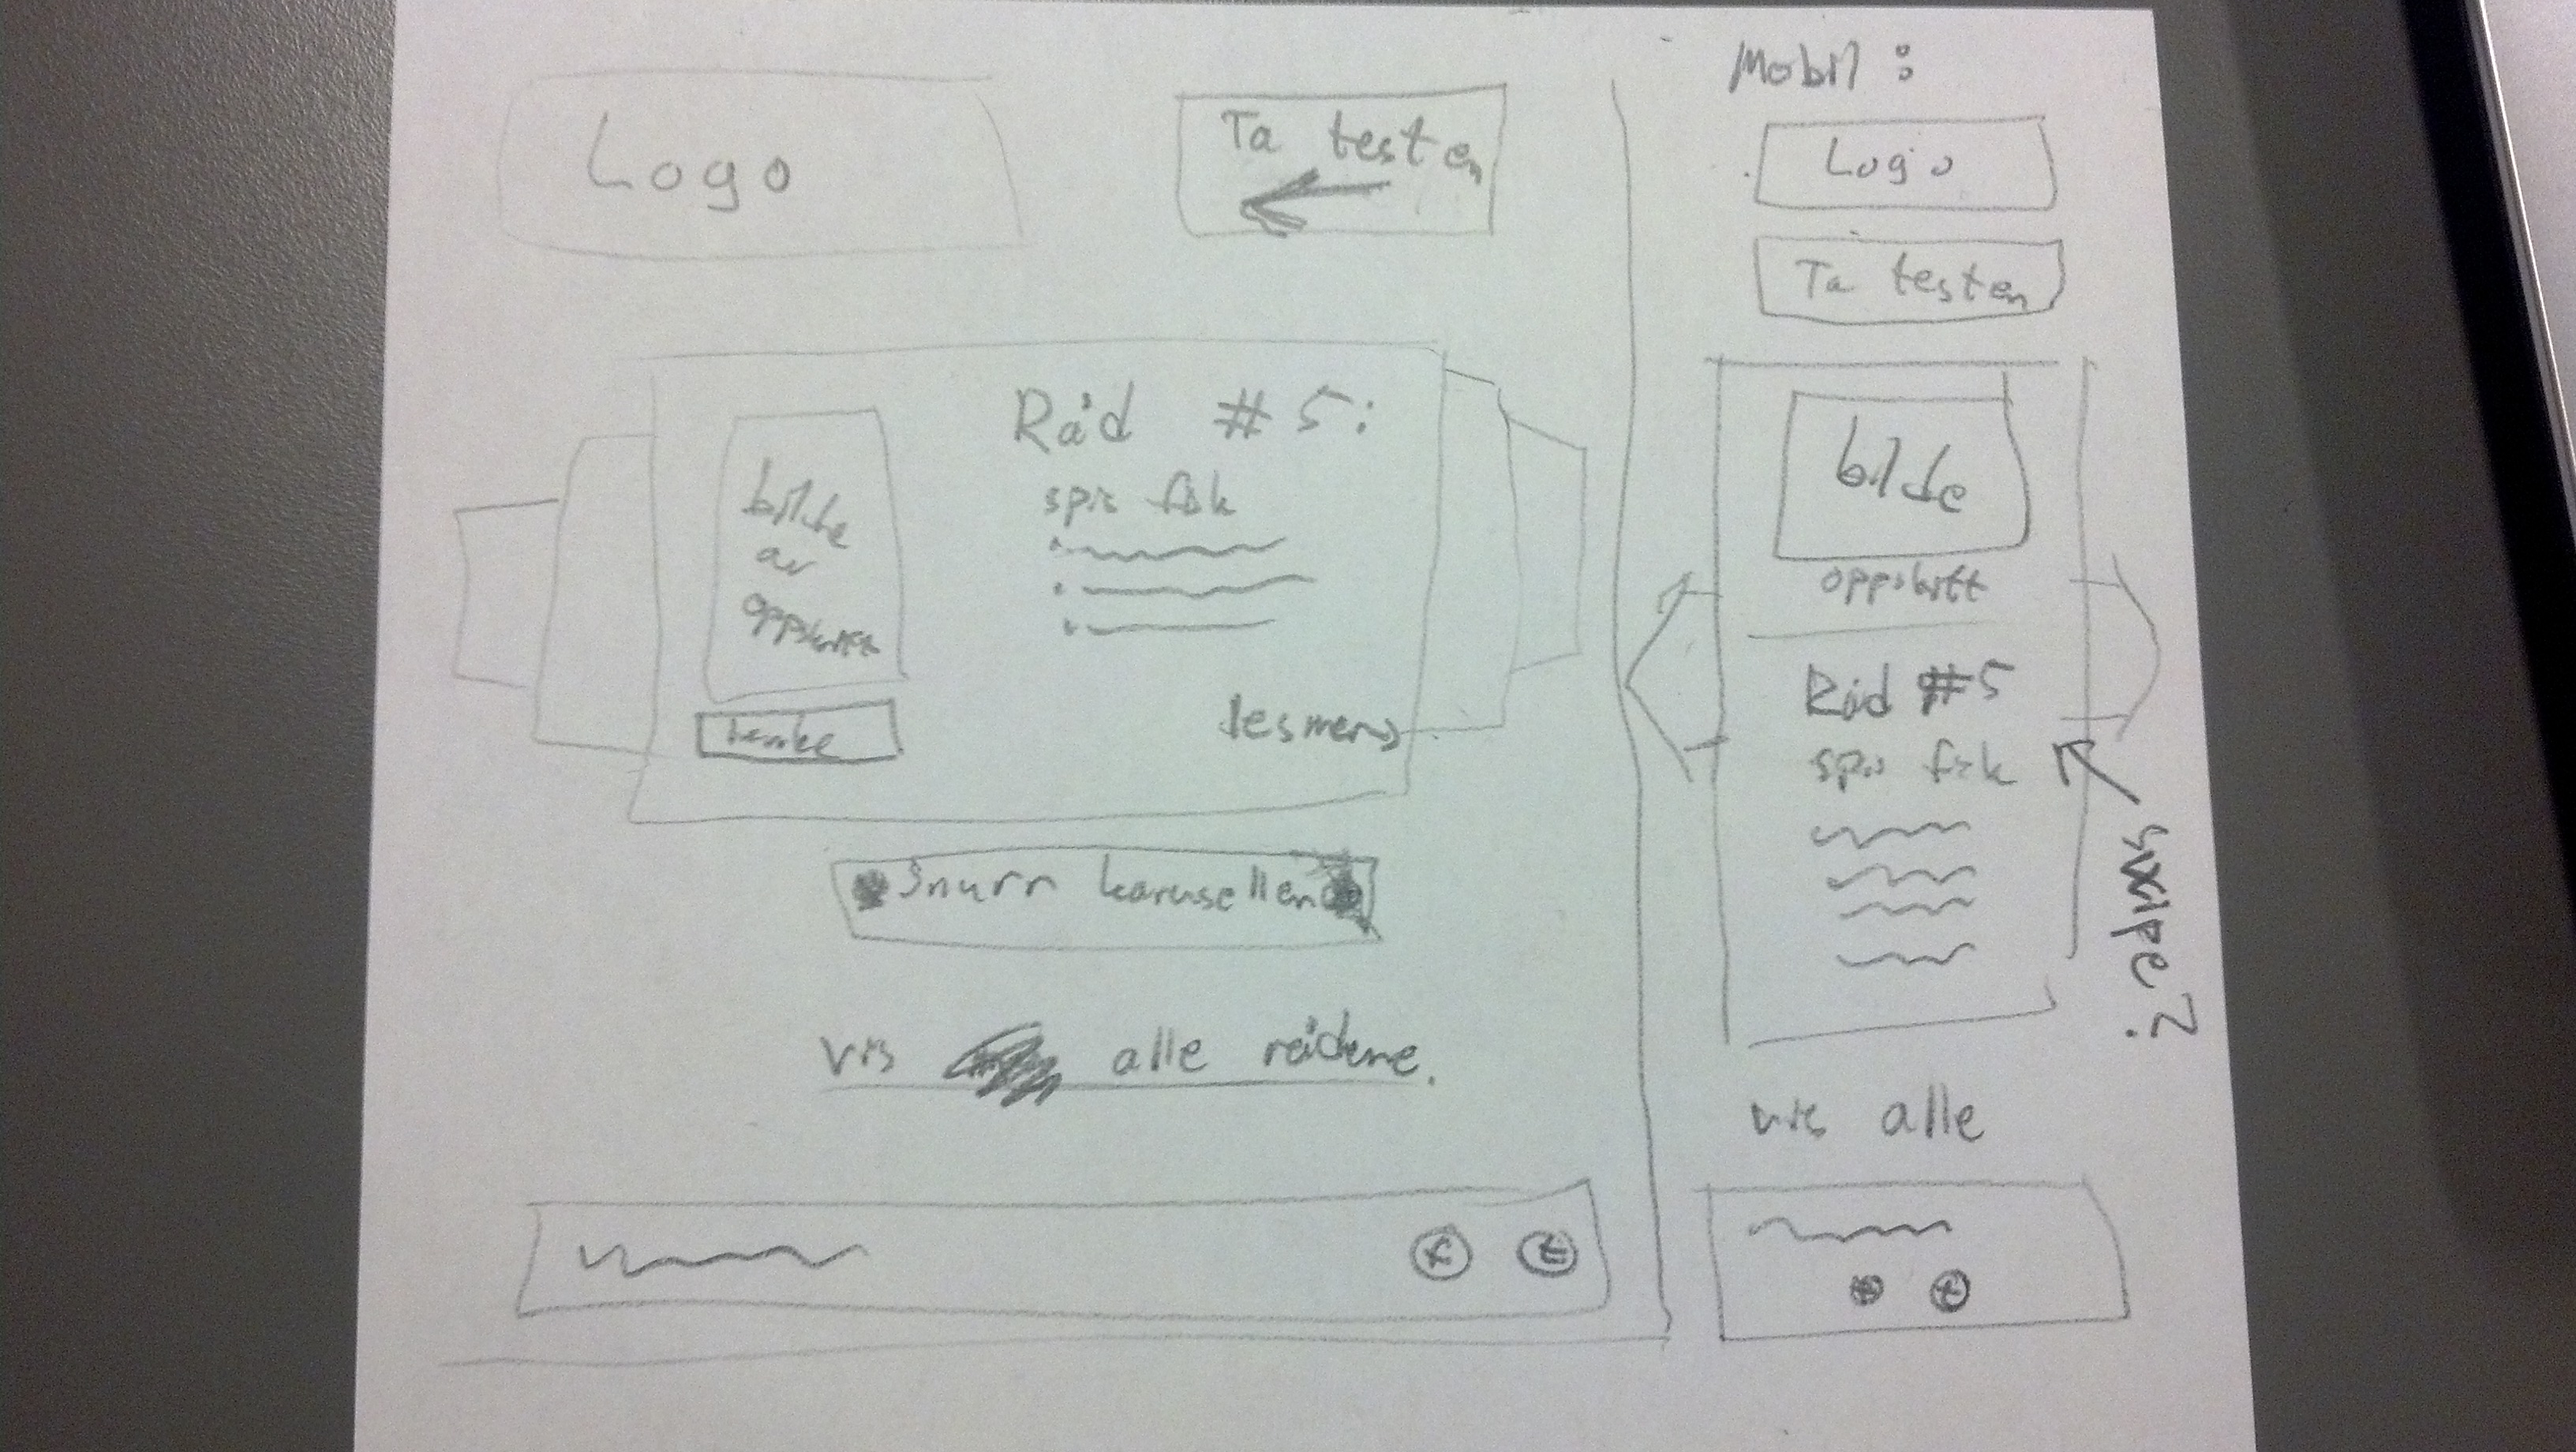 Logo
Ta testen
bilde
av
oppskrift
lenke
Råd #5:
spis fisk
les mer
Snurr karusellen
vis alle rådene.
Mobil:
Logo
Ta testen
bilde
oppskrift
Råd #5
spis fisk
swipe?
vis alle